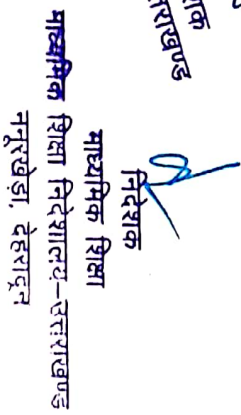 शक
राखण्ड
निदेशक
माध्यमिक शिक्षा
माध्यमिक शिक्षा निदेशालय-उत्तराखण्ड
ननूरखेड़ा, देहरादून